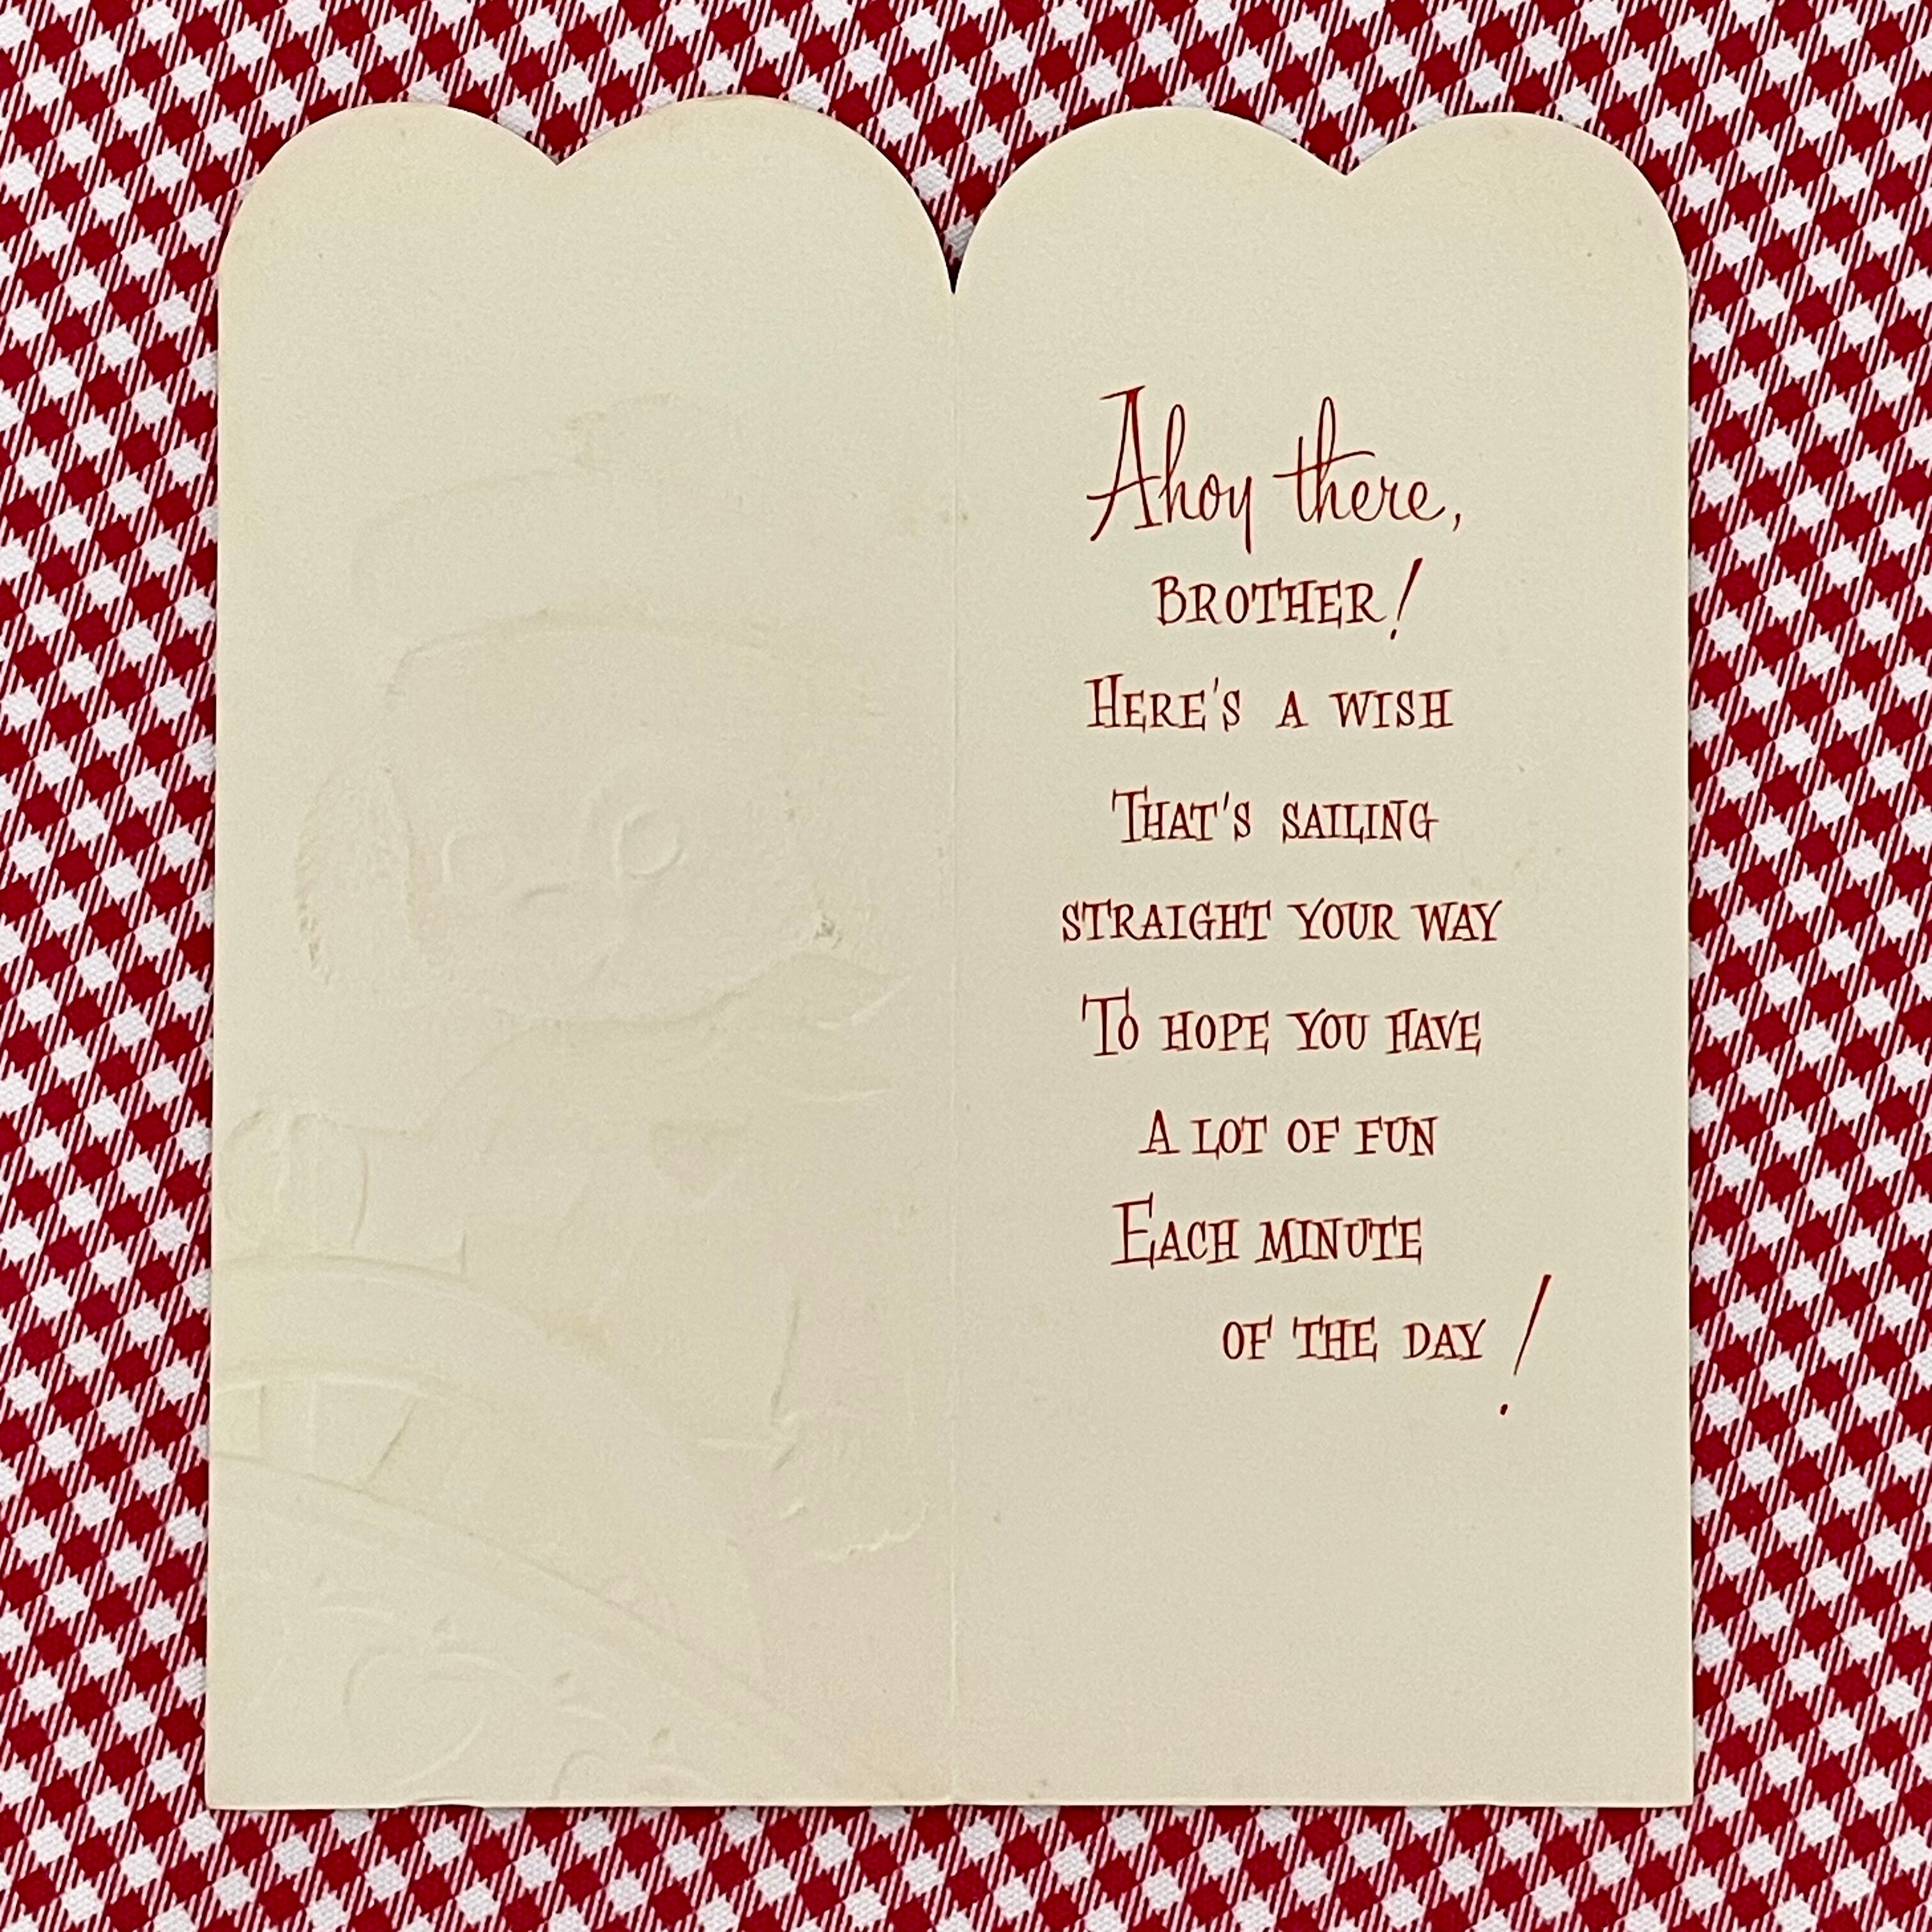 Ahoy there,
BROTHER!
HERE'S A WISH
THAT'S SAILING
STRAIGHT YOUR WAY
TO HOPE YOU HAVE
A LOT OF FUN
EACH MINUTE
OF THE DAY!